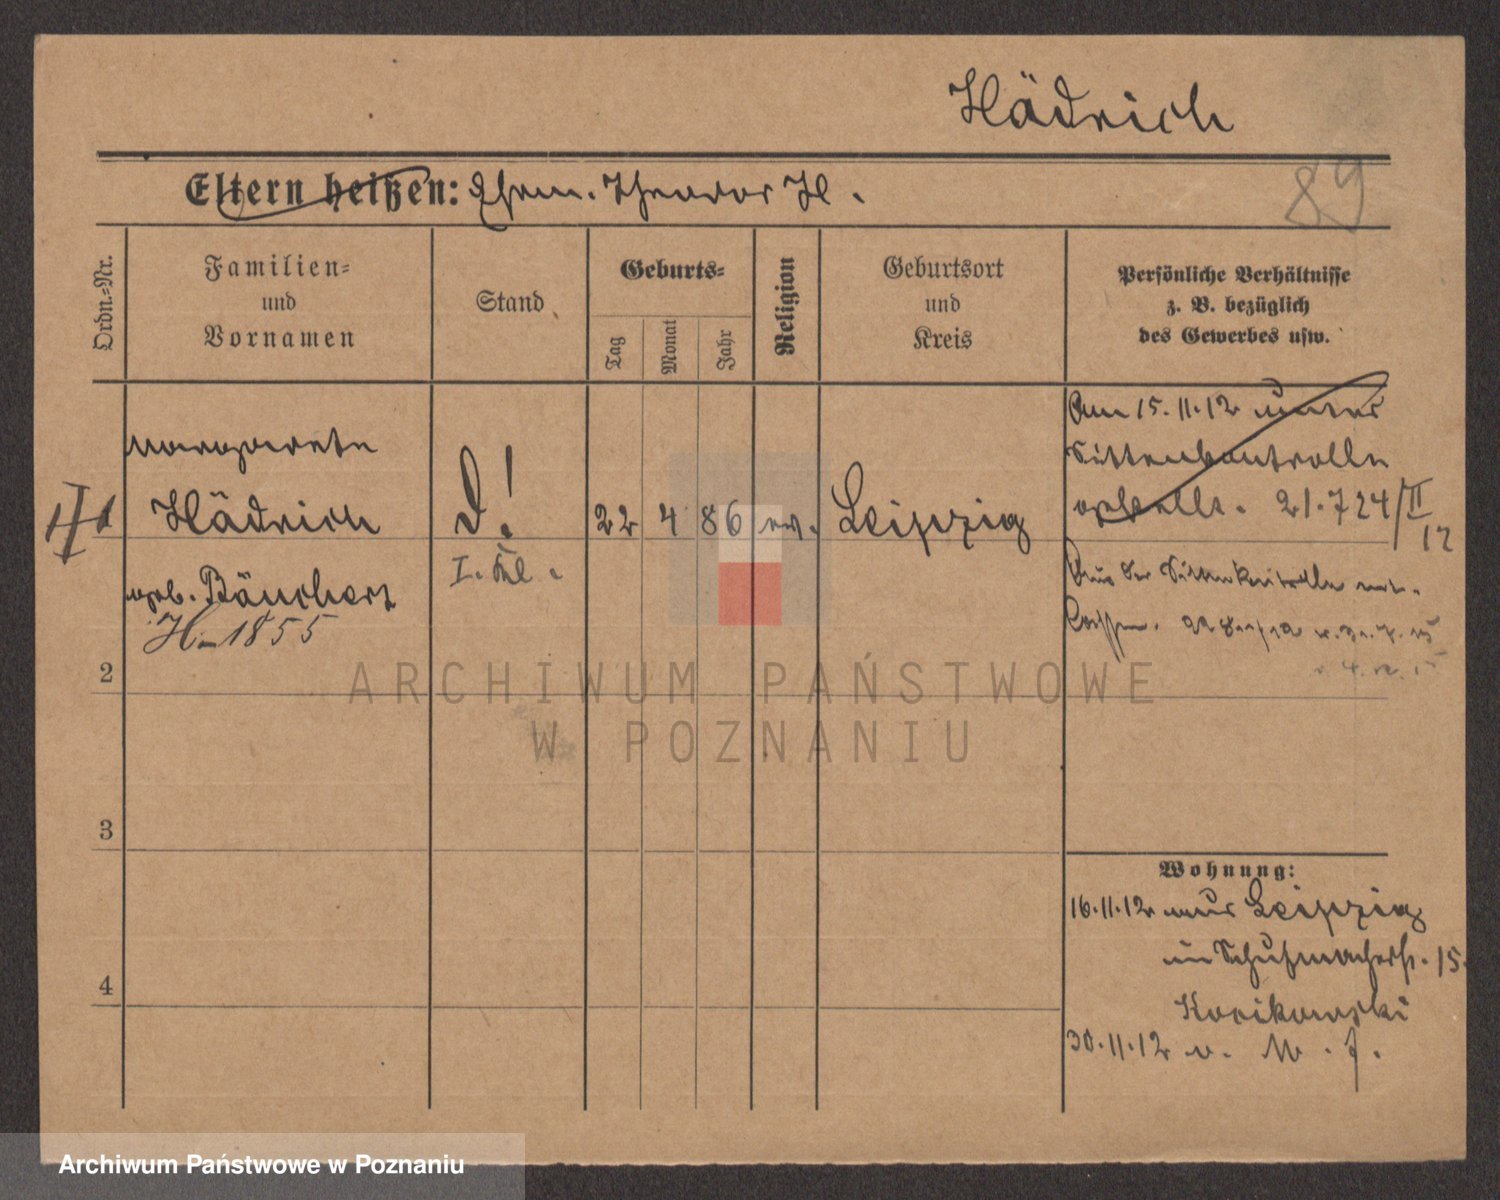 Hädrich
89
Eltern heißen: Ehem. Theodor H.
Ordn.-Nr.
Familien-
und
Vornamen
Stand
Geburts-
Tag
Monat
Jahr
Religion
Geburtsort
und
Kreis
Persönliche Verhältnisse
z. B. bezüglich
des Gewerbes usw.
Margarete
Hädrich
geb.
H-1855
D!
I. Kl.
22 4 86 ev. Leipzig
Am 15.11.12 unter
Sittenkontrolle
gestellt. 21.724/II
12
Aus der Sittenkontrolle ent-
lassen.
2
3
4
Wohnung:
16.11.12 aus Leipzig
in Schuhmacherst. 15.
30.11.12 v.
ARCHIWUM PAŃSTWOWE
W POZNANIU
Archiwum Państwowe w Poznaniu